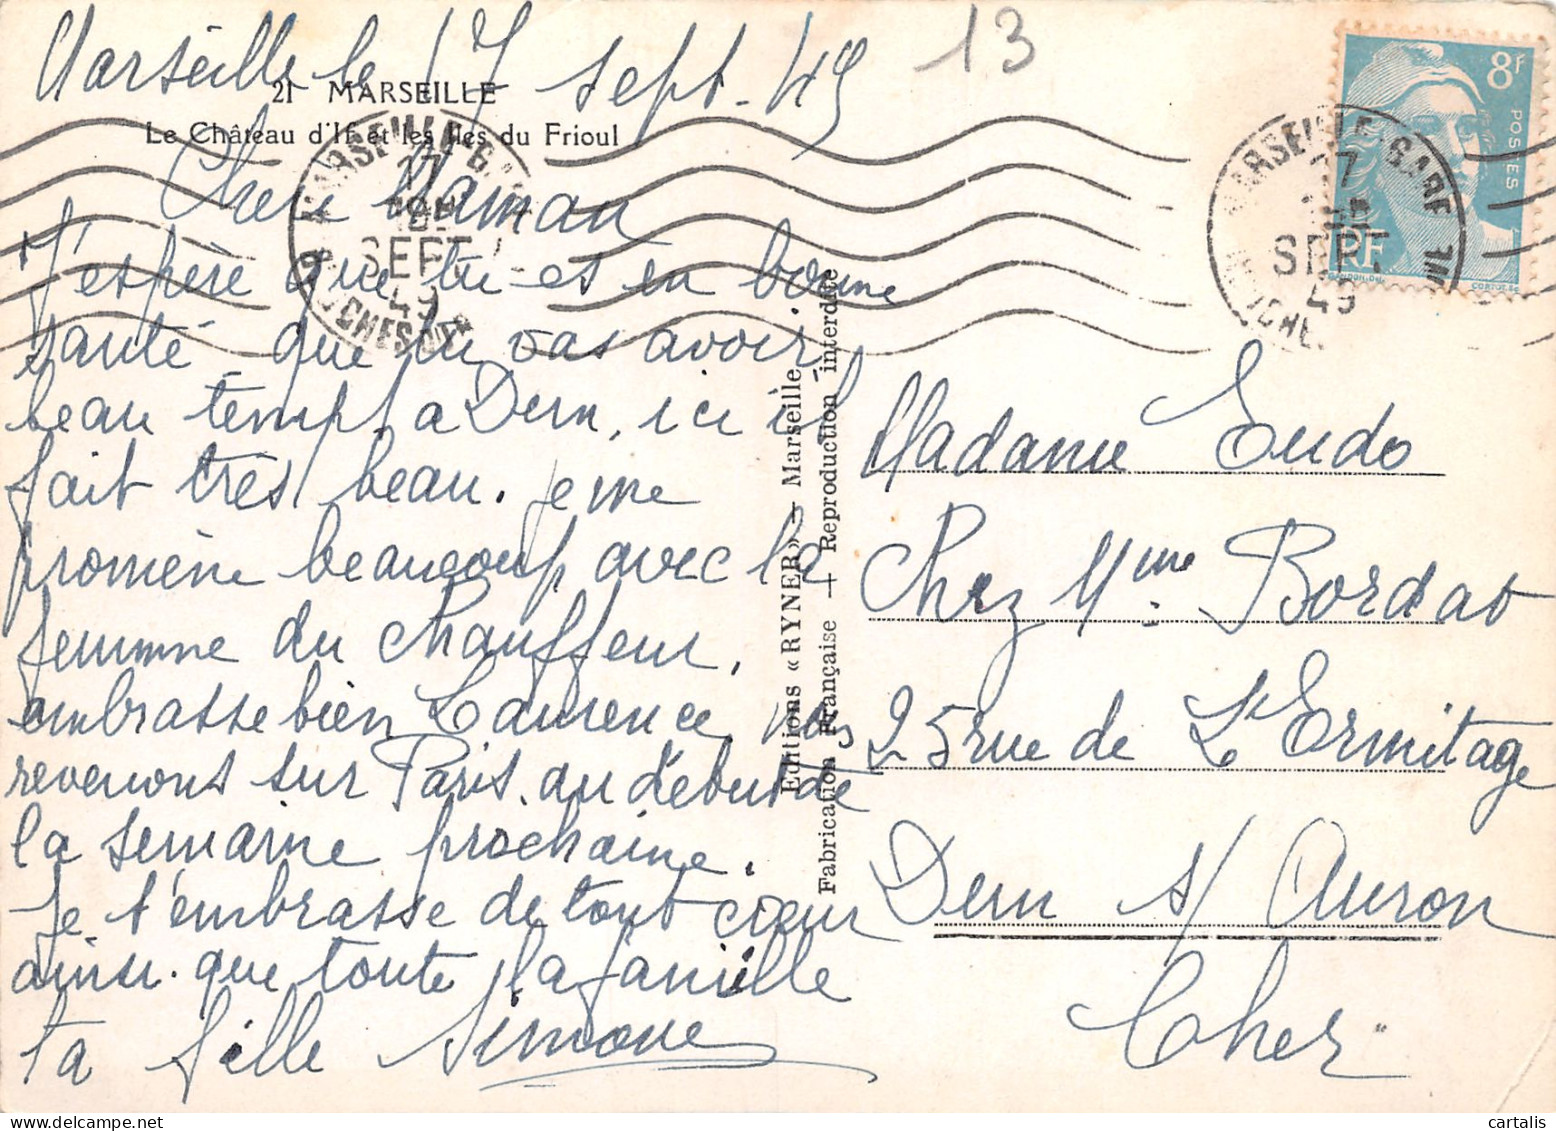 Marseille le 17 sept. 49
13
21 MARSEILLE
Le Château d'If et les Iles du Frioul
Chère Maman
J'espère que tu es en bonne
santé, que tu vas avoir
beau temps a Dun, ici il
fait très beau. je me
promène beaucoup avec la
femme du chauffeur,
embrasse bien Laurence, nous
revenons sur Paris au début de
la semaine prochaine.
Je t'embrasse de tout cœur
ainsi que toute la famille
ta fille Simone
Editions « RYNER » — Marseille
Fabrication Française — Reproduction interdite
8f
POSTES
RF
GANDON DEL
CORTOT SC
MARSEILLE GARE
17
SEPT
49
BOUCHES DU R
MARSEILLE GARE
17
SEPT.
49
Madame Eudo
Chez Mme Bordat
25 rue de L'Ermitage
Dun s/ Auron
Cher
cartalis